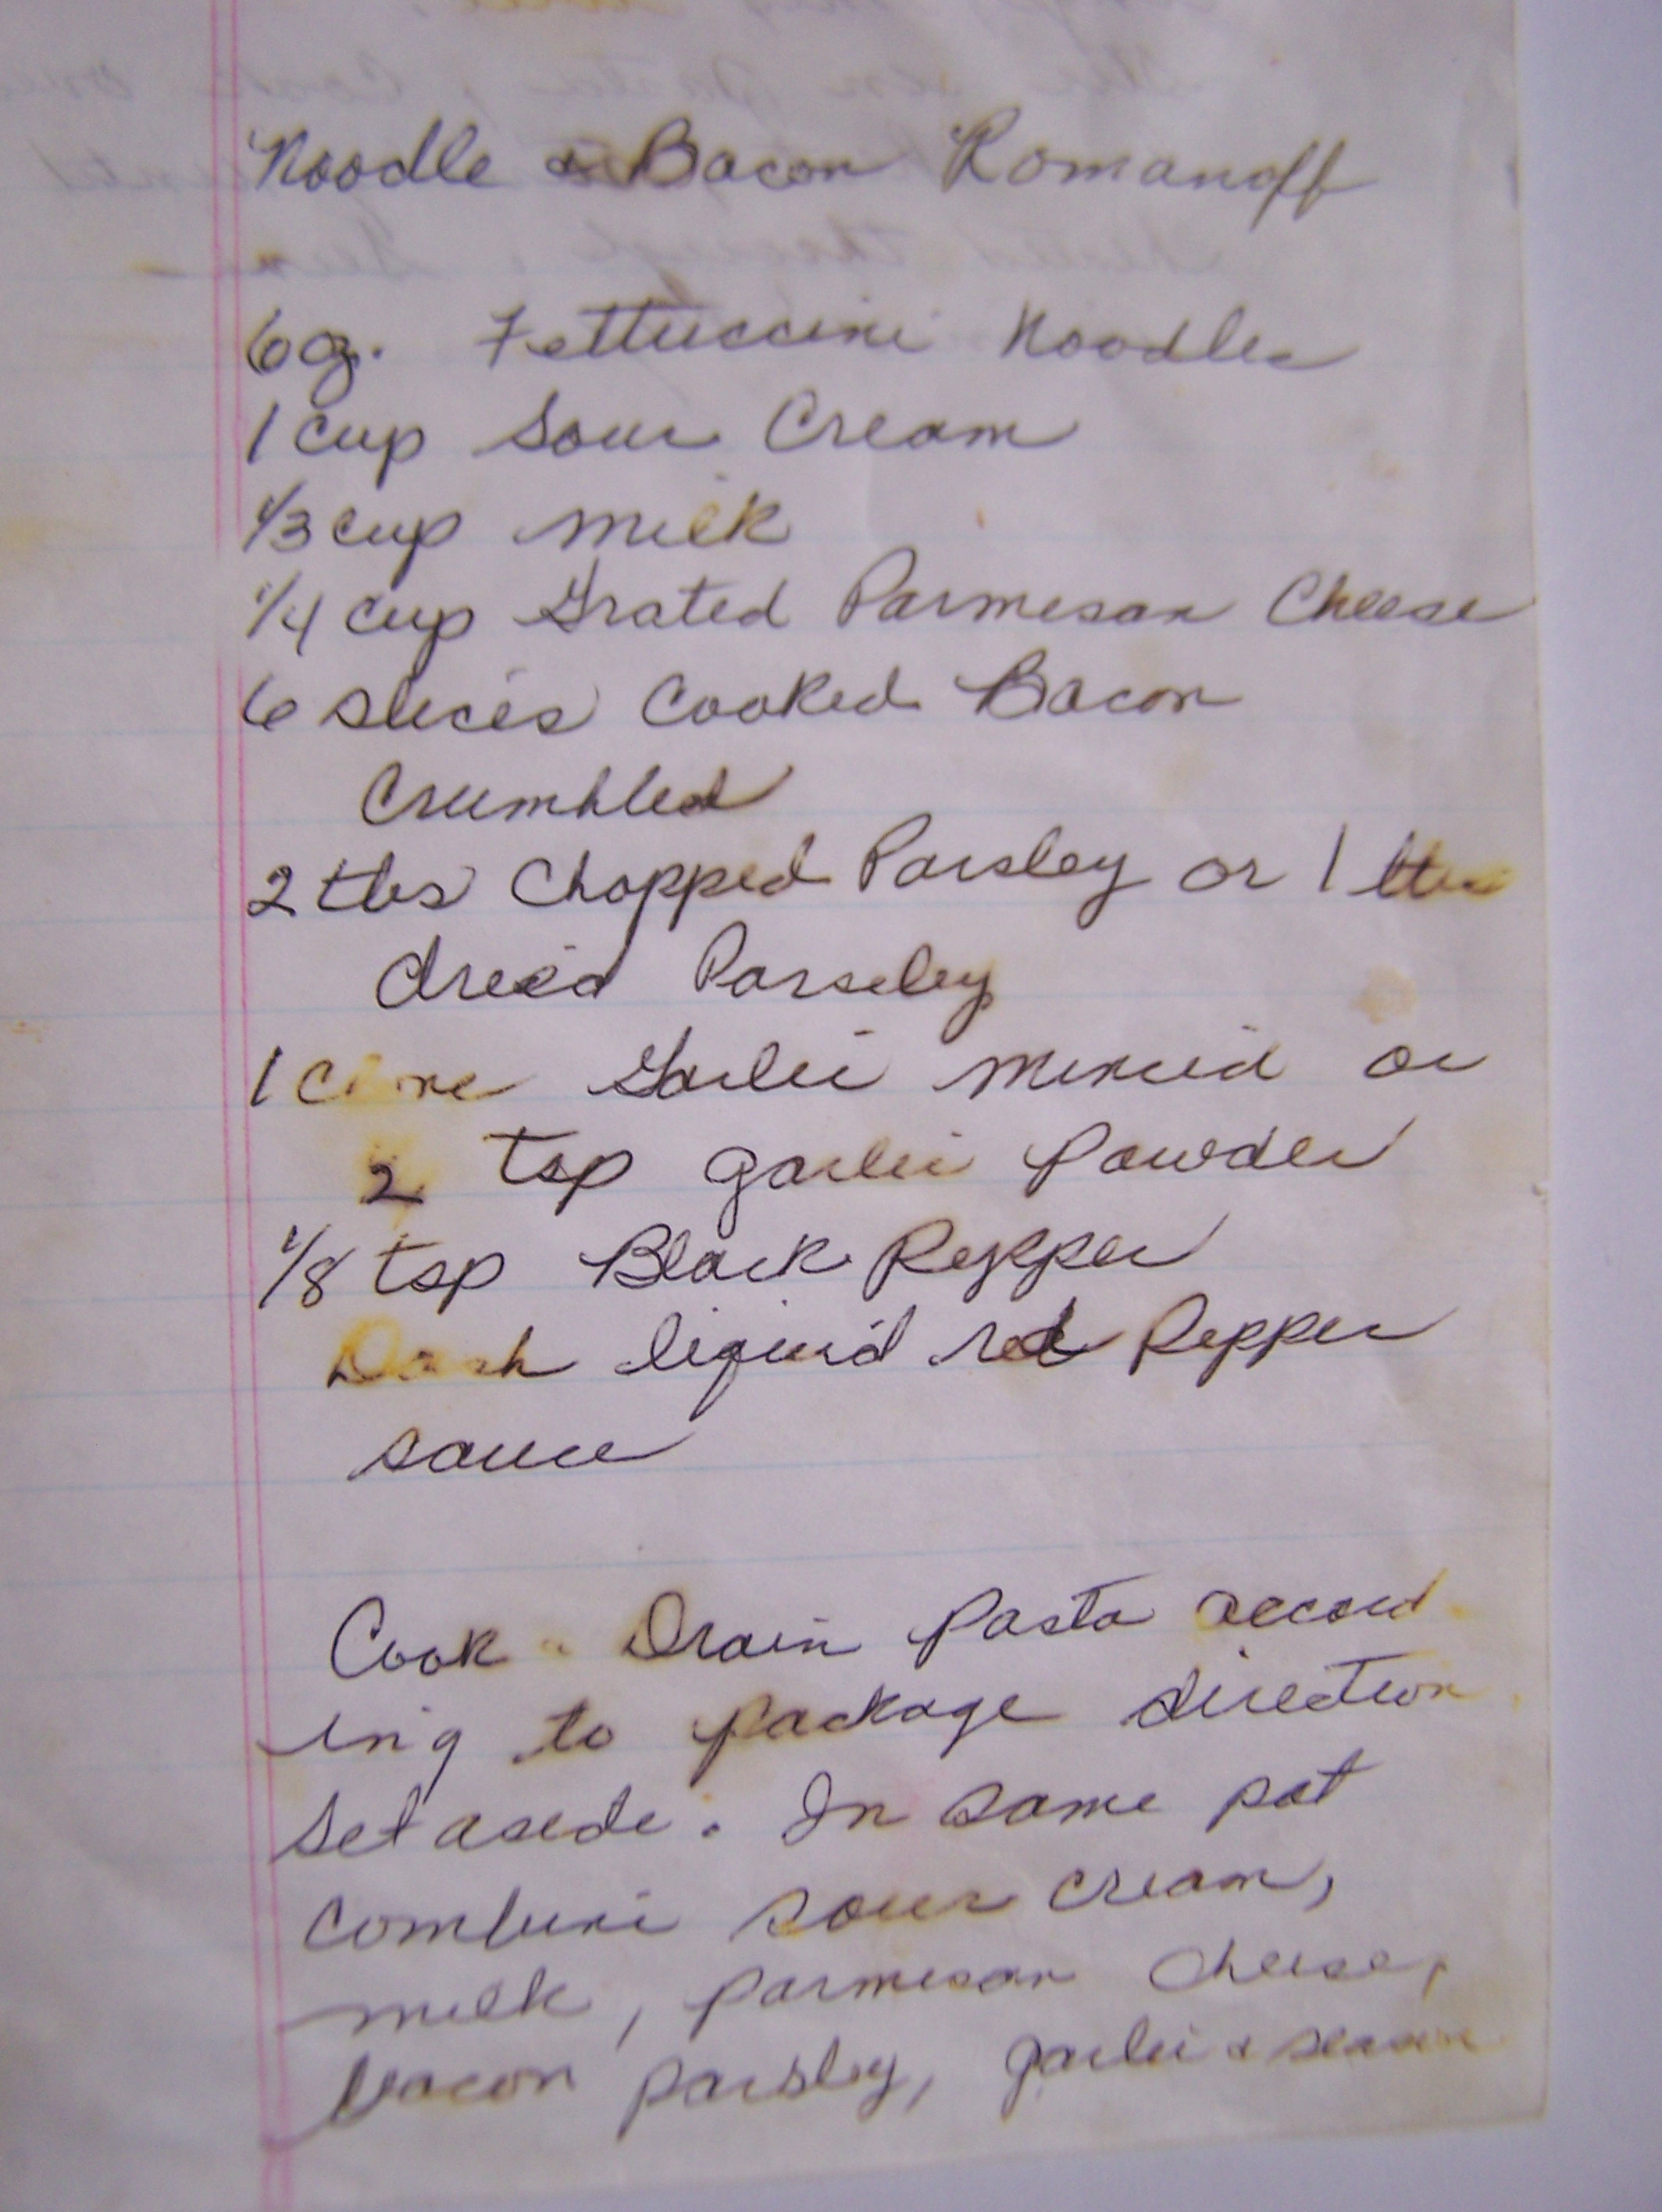 Noodle & Bacon Romanoff
6 oz. Fettuccini Noodles
1 cup Sour Cream
1/3 cup milk
1/4 cup Grated Parmesan Cheese
6 slices Cooked Bacon
Crumbled
2 tbs Chopped Parsley or 1
dried Parseley
1 Garlic minced or
2 tsp garlic Powder
1/8 tsp Black Pepper
Dash liquid red Pepper
sauce
Cook Drain Pasta accord
ing to package direction
Set aside. In same pot
combine sour cream,
milk, parmesan cheese,
bacon parsley, garlic &